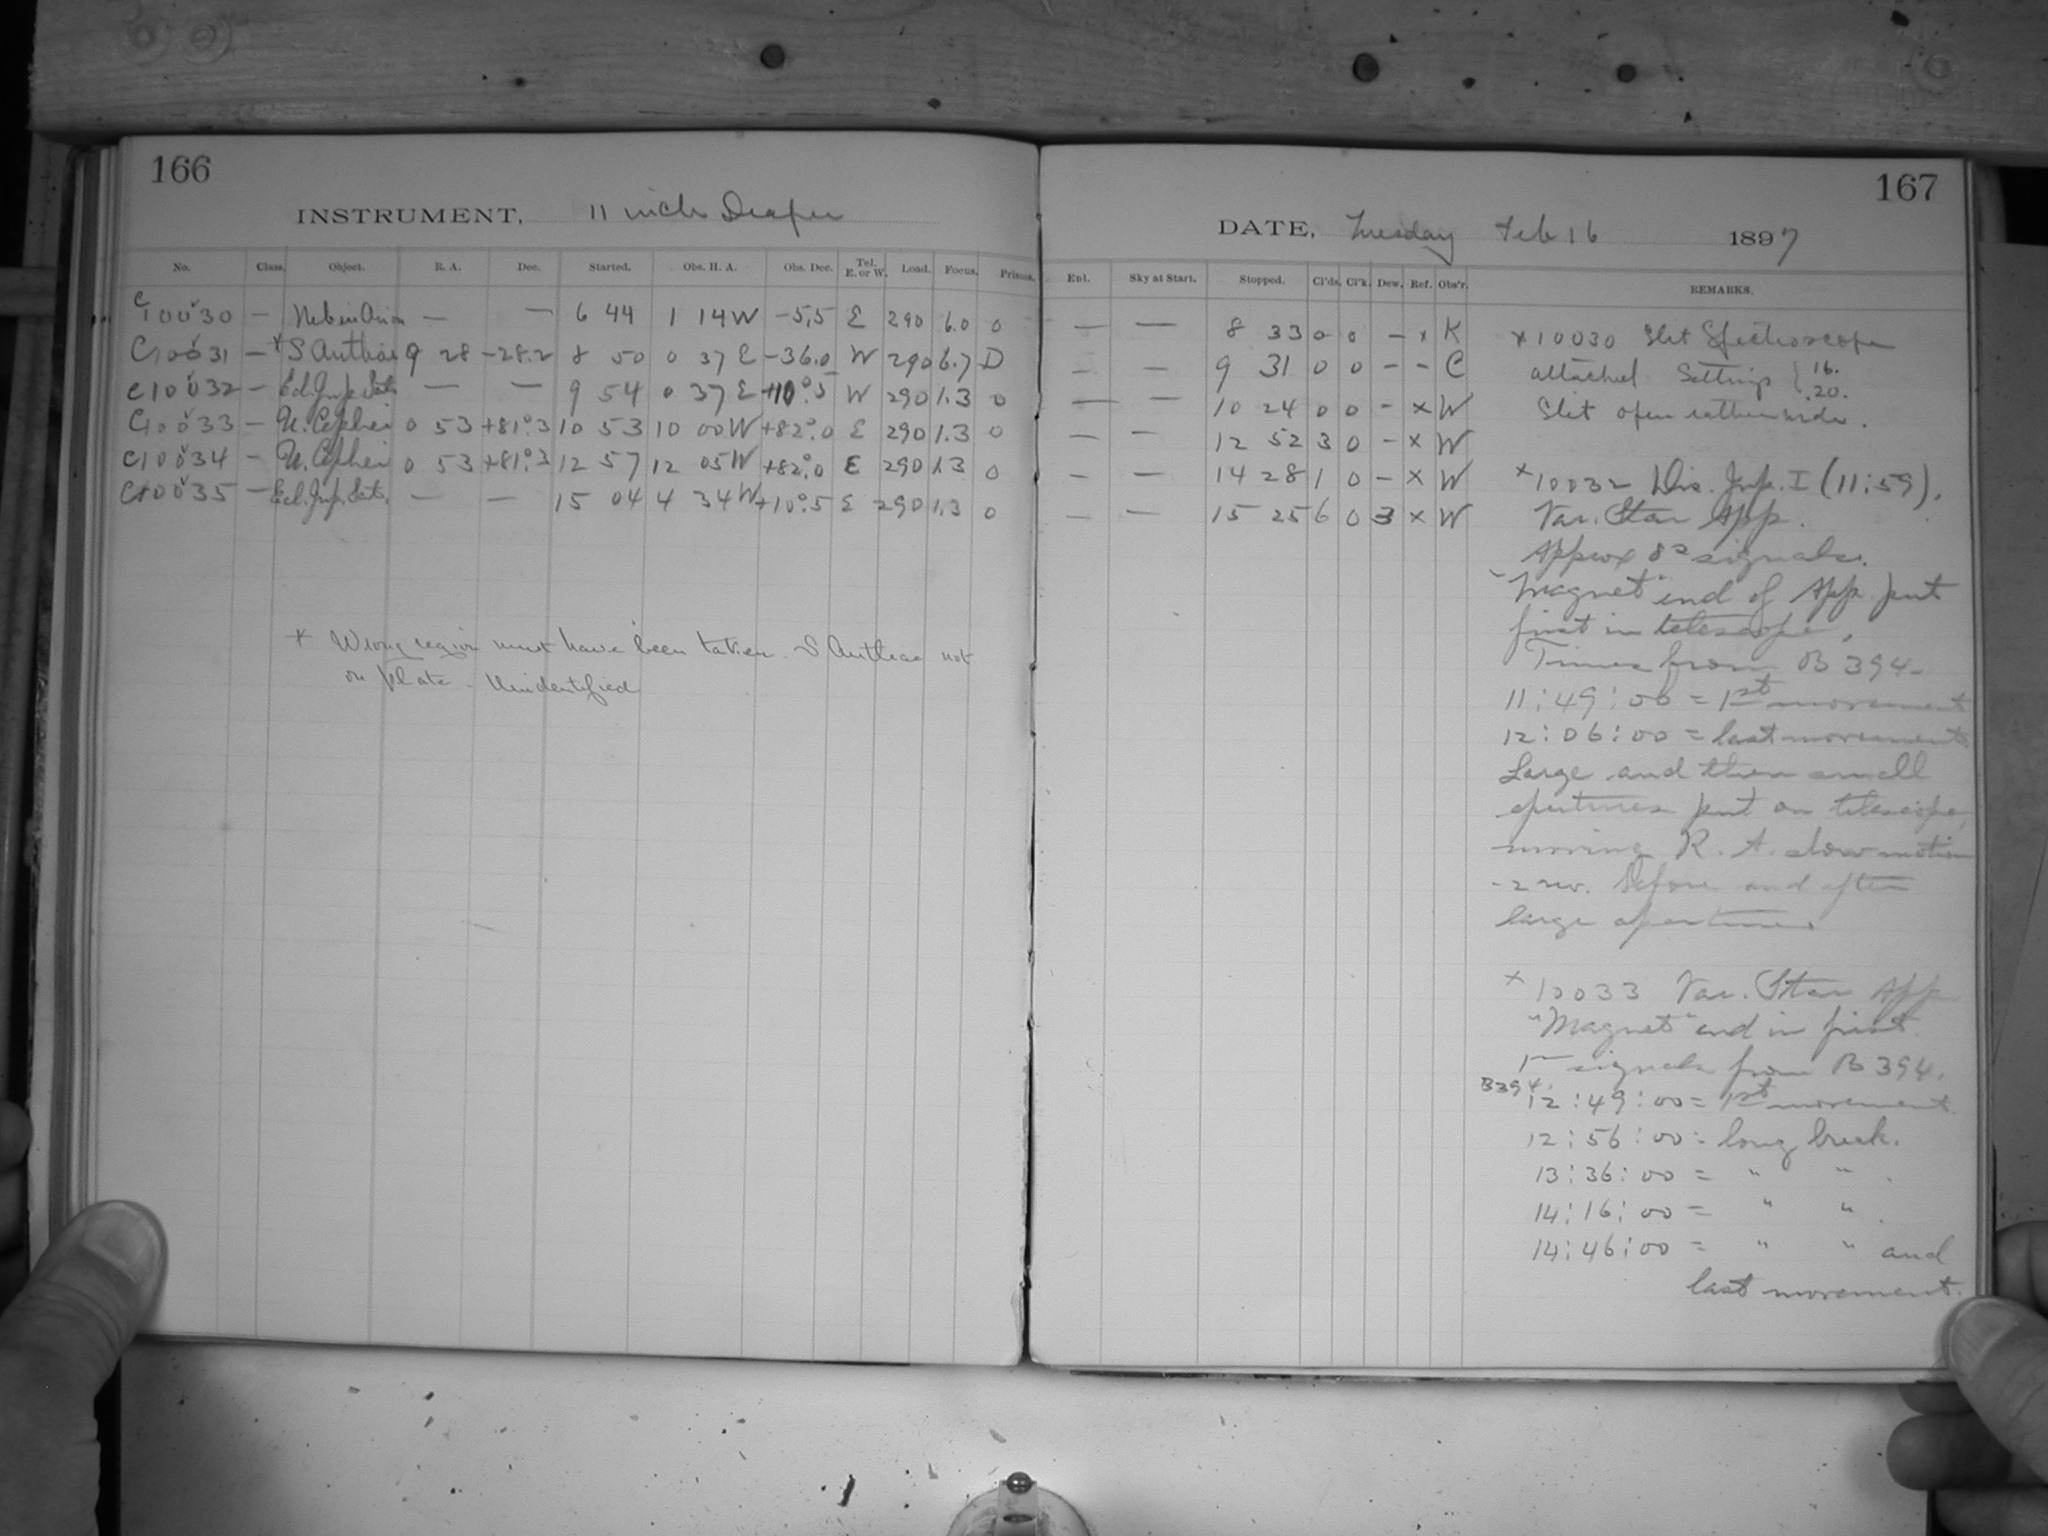 166
INSTRUMENT, 11 inch Draper
No. Class. Object. R. A. Dec. Started. Obs. H. A. Obs. Dec. Tel. E. or W. Load. Focus. Prisms.
C10030 — Neb in Orion — — 6 44 1 14 W -5.5 E 290 6.0 0
C10031 — *S Antliae 9 28 -28.2 8 50 0 37 E -36.0 W 290 6.7 D
C10032 — Ecl. Jup. Sats — — 9 54 0 37 E +10°.5 W 290 1.3 0
C10033 — U. Cephei 0 53 +81°.3 10 53 10 00 W +82°.0 E 290 1.3 0
C10034 — U. Cephei 0 53 +81°.3 12 57 12 05 W +82°.0 E 290 1.3 0
C10035 — Ecl. Jup. Sats. — — 15 04 4 34 W +10°.5 E 290 1.3 0
* Wrong region must have been taken. S Antliae not
on plate - Unidentified
167
DATE, Tuesday Feb 16 1897
Enl. Sky at Start. Stopped. Cl'ds. Cl'k. Dew. Ref. Obs'r. REMARKS.
— — 8 33 0 0 — x K
— — 9 31 0 0 — — C
— — 10 24 0 0 — x W
— — 12 52 3 0 — x W
— — 14 28 1 0 — x W
— — 15 25 6 0 3 x W
x10030 Slit Spectroscope
attached Settings { 16.
20.
Slit open rather wide.
x10032 Dis. Jup. I (11:59).
Var. Star App.
Approx 8s signals.
"Magnet" end of App. put
first in telescope.
Times from B 394—
11:49:00 = 1st movement
12:06:00 = last movement
Large and then small
apertures put on telescope,
moving R. A. slow motion
-2 rev. before and after
large aperture.
x10033 Var. Star App
"Magnet" end in first.
1m signals from B 394.
B394.
12:49:00 = 1st movement.
12:56:00 = long break.
13:36:00 = " " .
14:16:00 = " " .
14:46:00 = " " and
last movement.